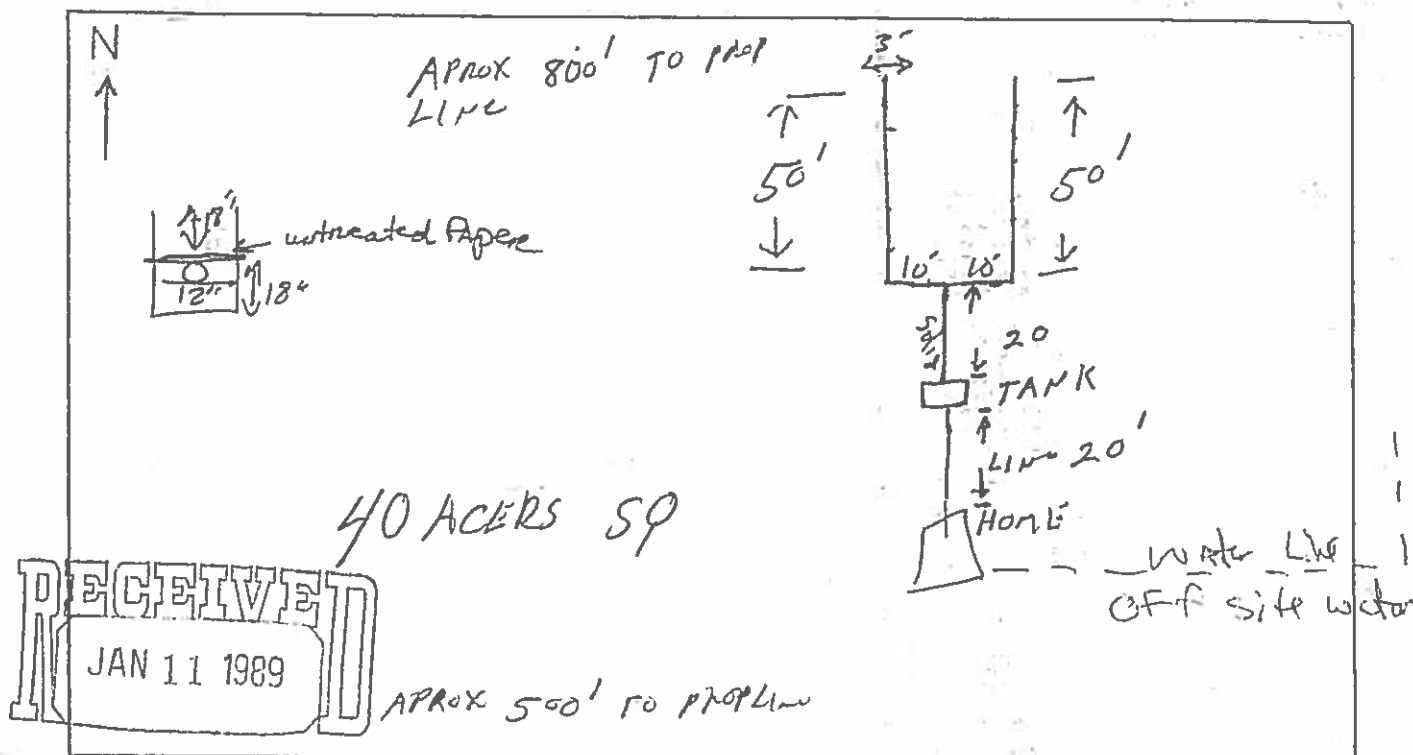 N
APROX 800' TO PROP
LINE
3'
50'
50'
18"
untreated Paper
12"
18"
10' 10'
20
TANK
LINE 20'
HOME
40 ACERS SQ
Water Line
OFF site water
RECEIVED
JAN 11 1989
APROX 500' TO PROPLINE